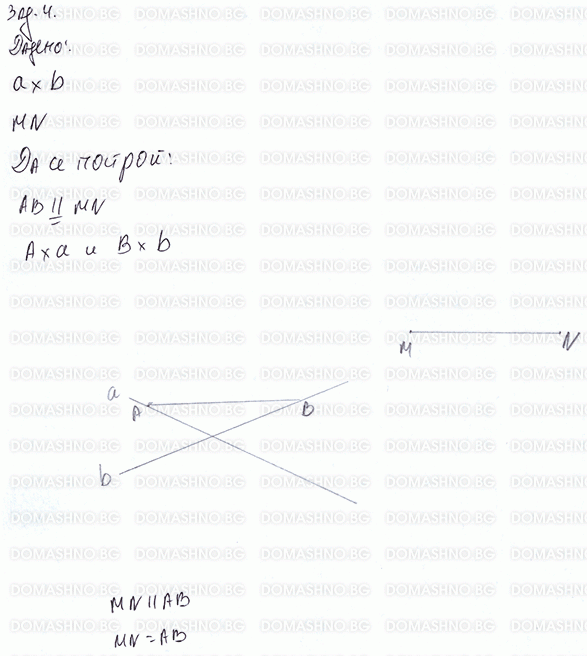 Зад. 4.
Дадено:
a x b
MN
Да се построй:
AB || MN
=
A x a и B x b
M N
a A B
b
MN || AB
MN = AB
DOMASHNO.BG